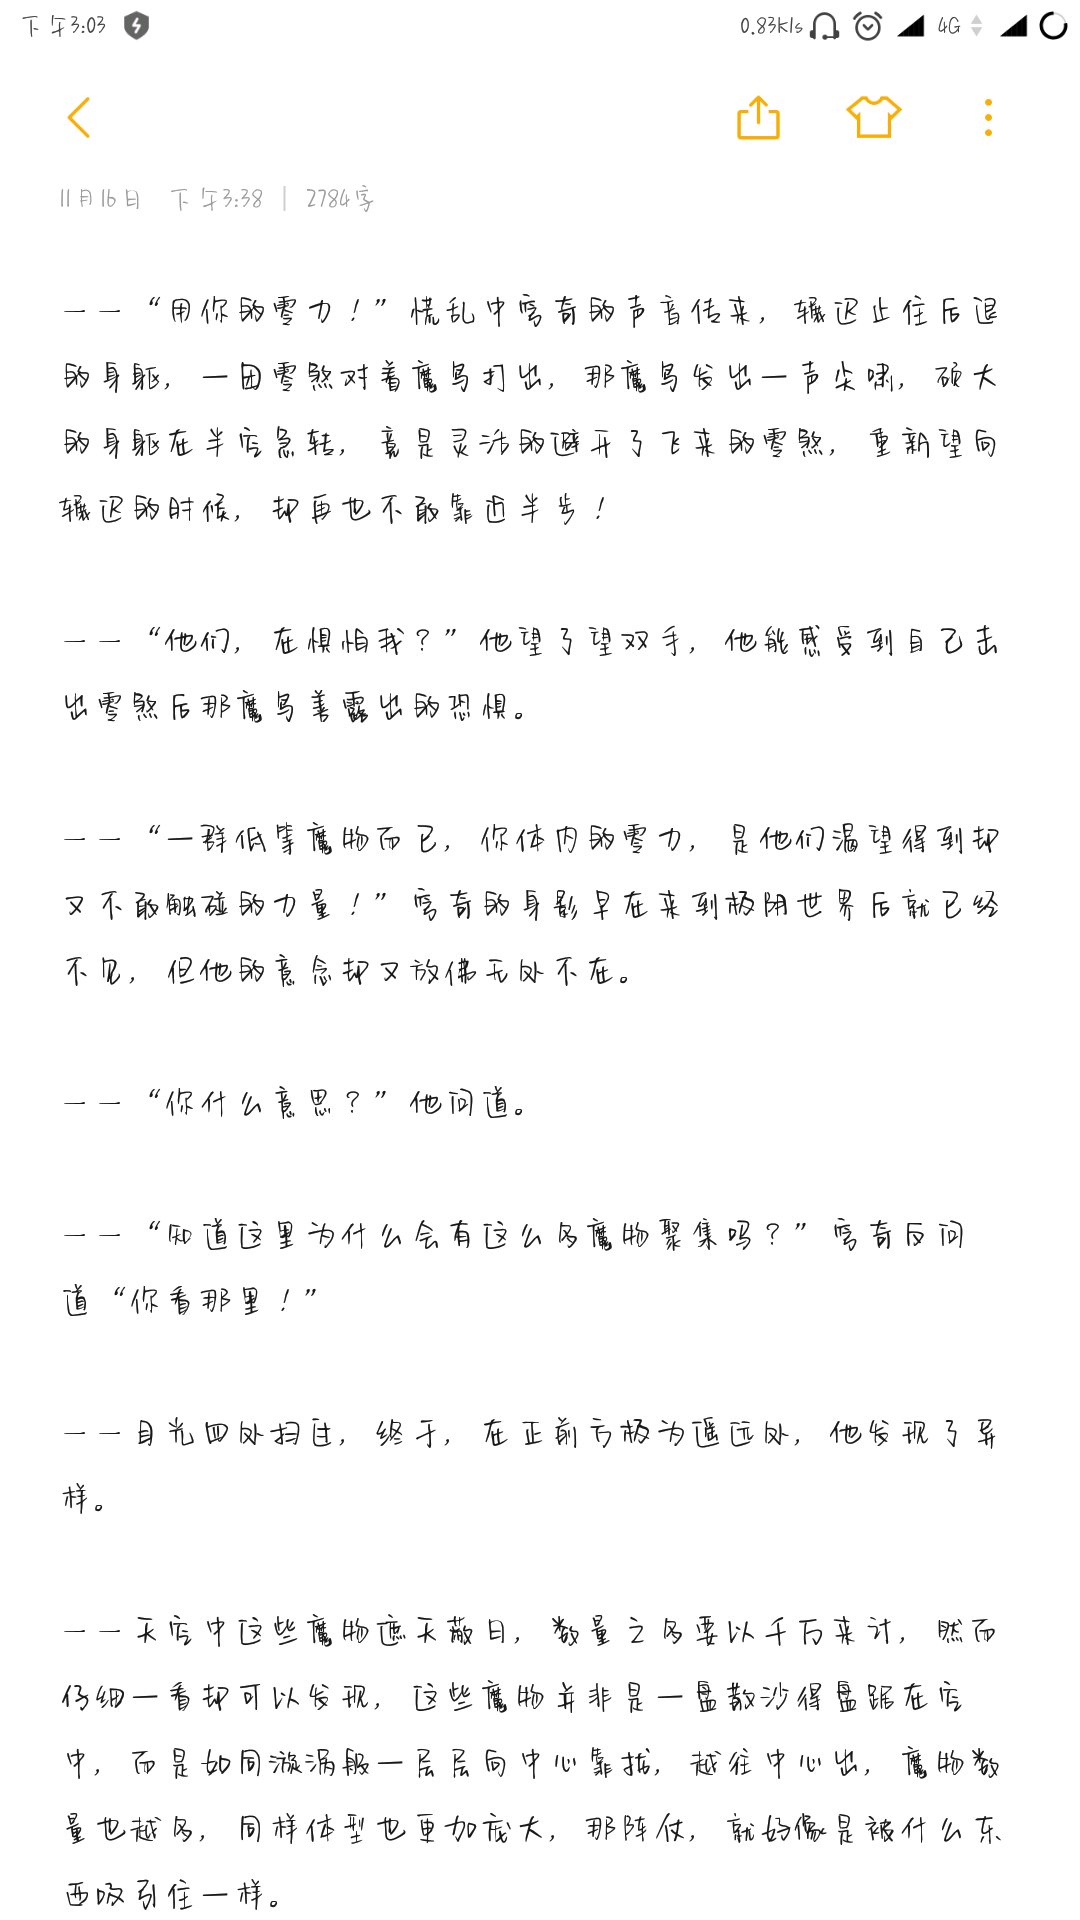 下午3:03
0.83K/s
4G
11月16日 下午3:38 | 2784字
一一“用你的零力！”慌乱中穹奇的声音传来，辗迟止住后退
的身躯，一团零煞对着魔鸟打出，那魔鸟发出一声尖啸，硕大
的身躯在半空急转，竟是灵活的避开了飞来的零煞，重新望向
辗迟的时候，却再也不敢靠近半步！
一一“他们，在惧怕我？”他望了望双手，他能感受到自己击
出零煞后那魔鸟善露出的恐惧。
一一“一群低等魔物而已，你体内的零力，是他们渴望得到却
又不敢触碰的力量！”穹奇的身影早在来到极阴世界后就已经
不见，但他的意念却又放佛无处不在。
一一“你什么意思？”他问道。
一一“知道这里为什么会有这么多魔物聚集吗？”穹奇反问
道“你看那里！”
一一目光四处扫过，终于，在正前方极为遥远处，他发现了异
样。
一一天空中这些魔物遮天蔽日，数量之多要以千万来计，然而
仔细一看却可以发现，这些魔物并非是一盘散沙得盘踞在空
中，而是如同漩涡般一层层向中心靠拢，越往中心出，魔物数
量也越多，同样体型也更加庞大，那阵仗，就好像是被什么东
西吸引住一样。